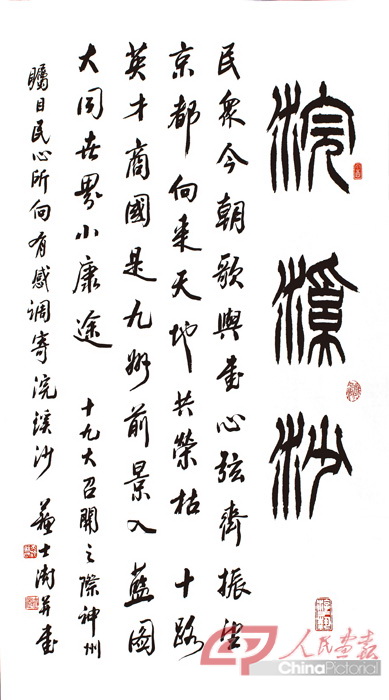 浣溪沙
民衆今朝歌與書心弦齊振望
京都向來天地共榮枯十路
英才商國是九州前景入藍圖
大同世界小康途 十九大召開之際神州
矚目民心所向有感調寄浣溪沙 蘇士澍并書
人民画报
ChinaPictorial